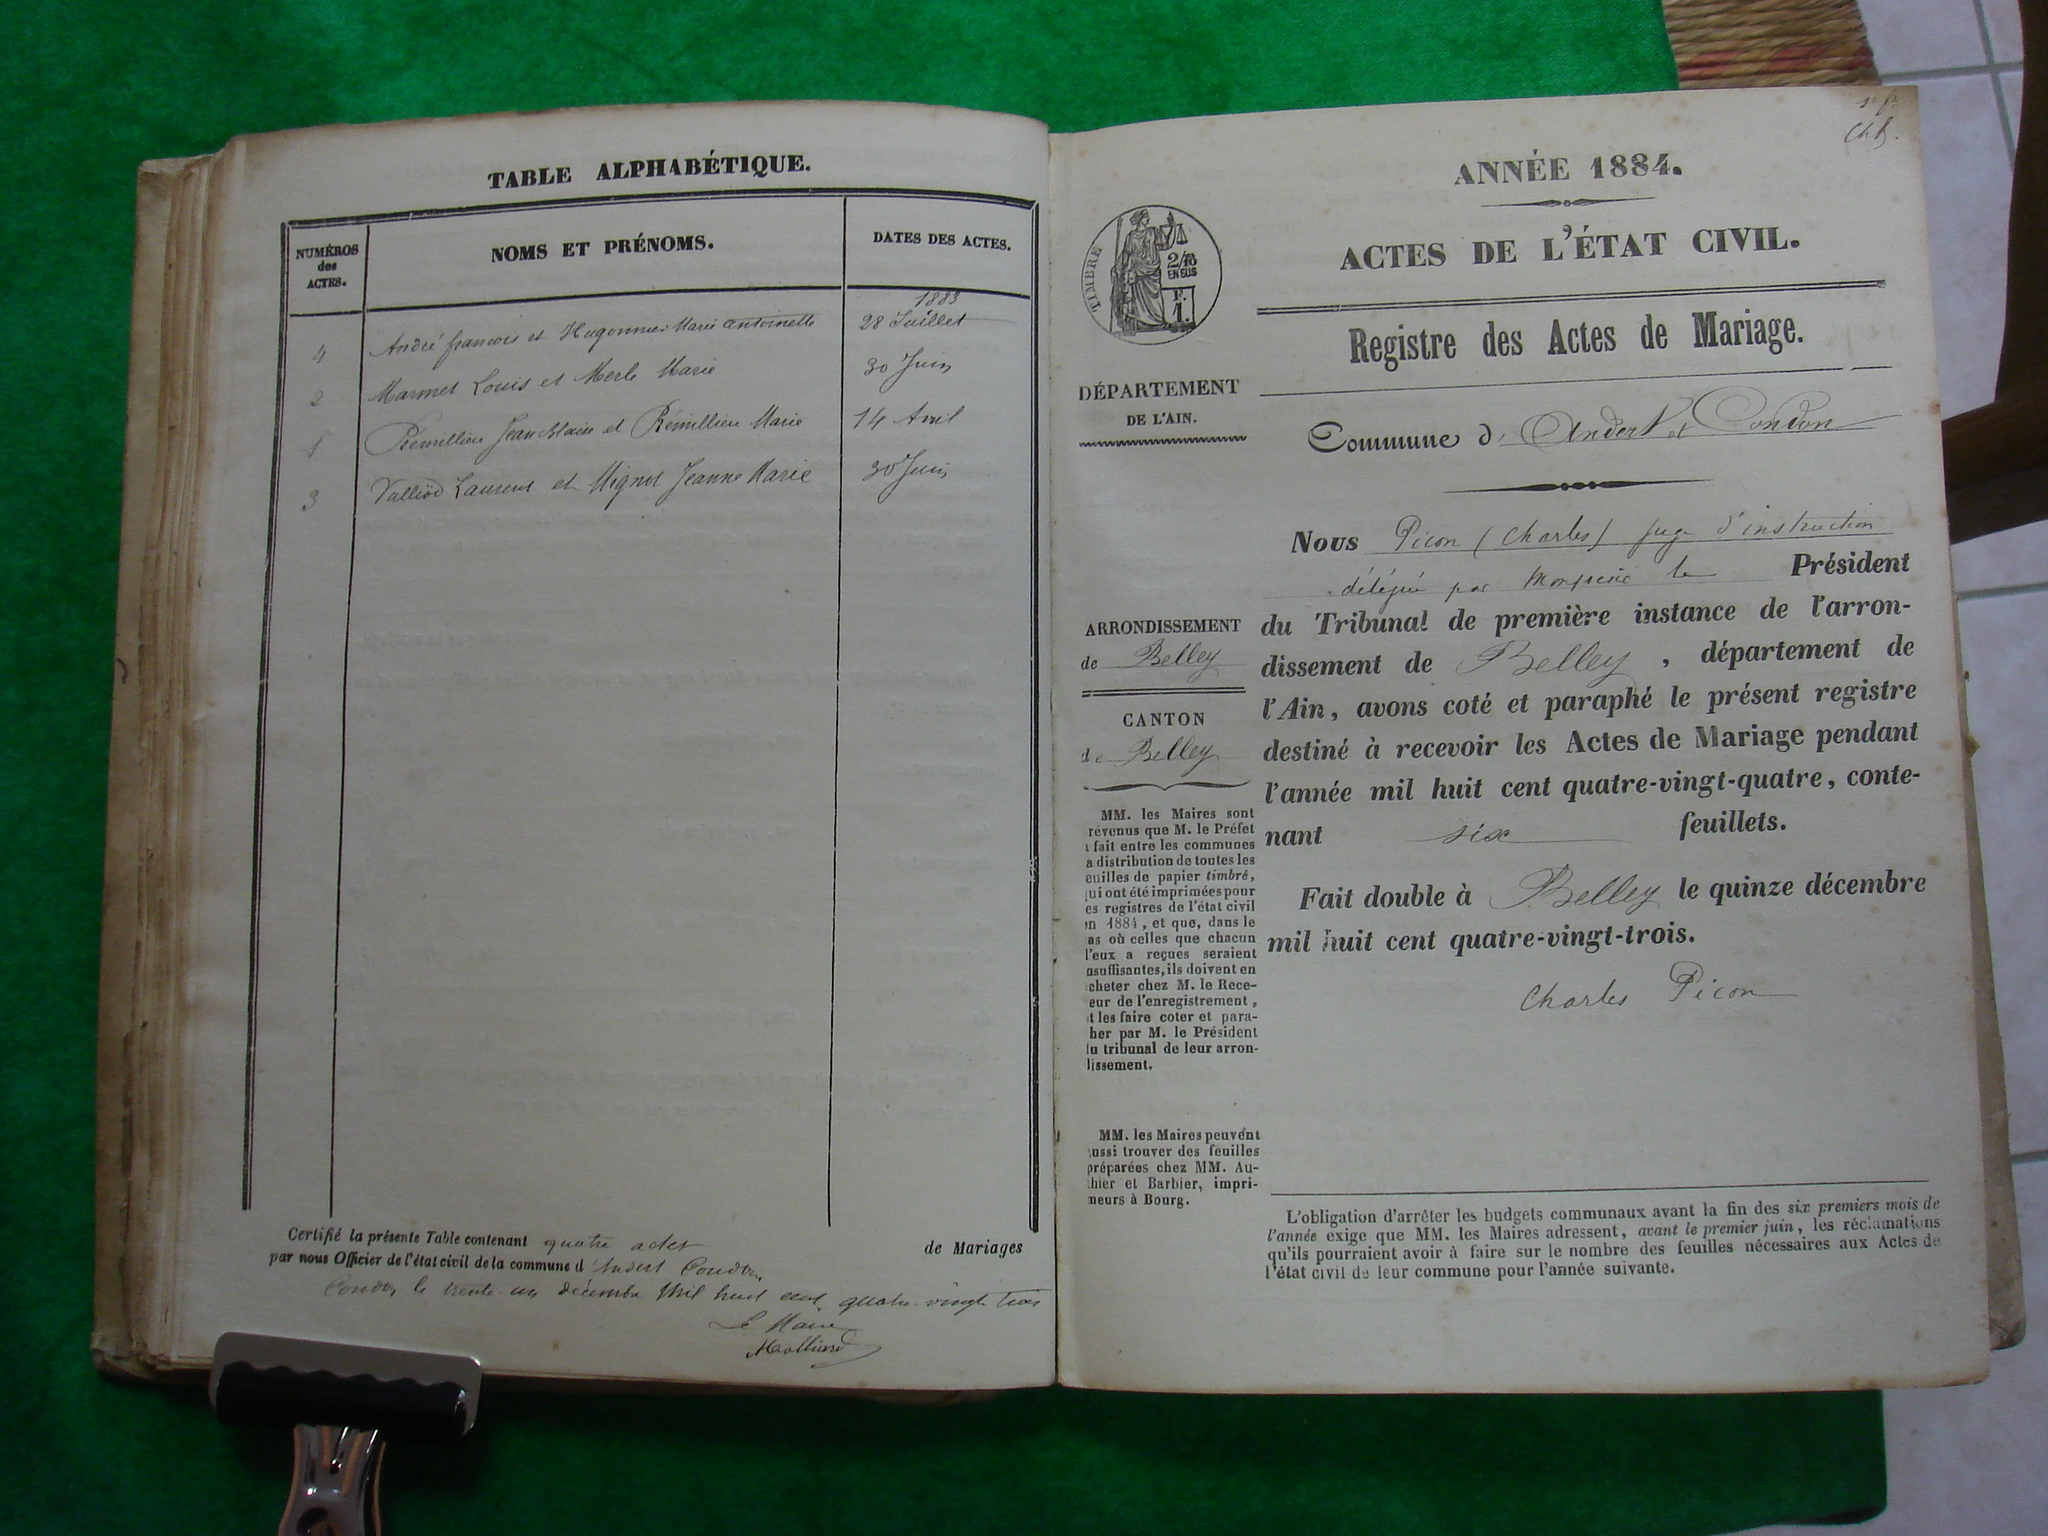 TABLE ALPHABÉTIQUE.
NUMÉROS des ACTES.
NOMS ET PRÉNOMS.
DATES DES ACTES.
1883
4 André françois et Hugonnier Marie antoinette 28 Juillet
2 Marmet Louis et Merle Marie 30 Juin
1 Rémillieu Jean et Rémillieu Marie 14 Avril
3 Valliod Laurent et Mignot Jeanne Marie 30 Juin
Certifié la présente Table contenant quatre actes de Mariages
par nous Officier de l'état civil de la commune d'Andert Condon
Condon le trente-un décembre mil huit cent quatre-vingt trois
Le Maire
ANNÉE 1884.
ACTES DE L'ÉTAT CIVIL.
Registre des Actes de Mariage.
TIMBRE
2/10
EN SUS
F.
1.
DÉPARTEMENT
DE L'AIN.
Commune d' Andert et Condon
Nous Picon (Charles) juge d'instruction
délégué par Monsieur le Président
du Tribunal de première instance de l'arron-
dissement de Belley, département de
l'Ain, avons coté et paraphé le présent registre
destiné à recevoir les Actes de Mariage pendant
l'année mil huit cent quatre-vingt-quatre, conte-
nant six feuillets.
Fait double à Belley le quinze décembre
mil huit cent quatre-vingt-trois.
Charles Picon
ARRONDISSEMENT
de Belley
CANTON
de Belley
MM. les Maires sont
révenus que M. le Préfet
fait entre les communes
a distribution de toutes les
euilles de papier timbré,
ui ont été imprimées pour
es registres de l'état civil
n 1884, et que, dans le
as où celles que chacun
'eux a reçues seraient
nsuffisantes, ils doivent en
cheter chez M. le Rece-
eur de l'enregistrement,
t les faire coter et para-
her par M. le Président
u tribunal de leur arron-
issement.
MM. les Maires peuvent
ussi trouver des feuilles
préparées chez MM. Au-
hier et Barbier, impri-
meurs à Bourg.
L'obligation d'arrêter les budgets communaux avant la fin des six premiers mois de
l'année exige que MM. les Maires adressent, avant le premier juin, les réclamations
qu'ils pourraient avoir à faire sur le nombre des feuilles nécessaires aux Actes de
l'état civil de leur commune pour l'année suivante.